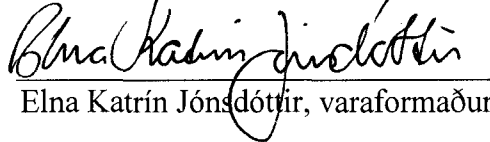 Elna Katrín Jónsdóttir
Elna Katrín Jónsdóttir, varaformaður